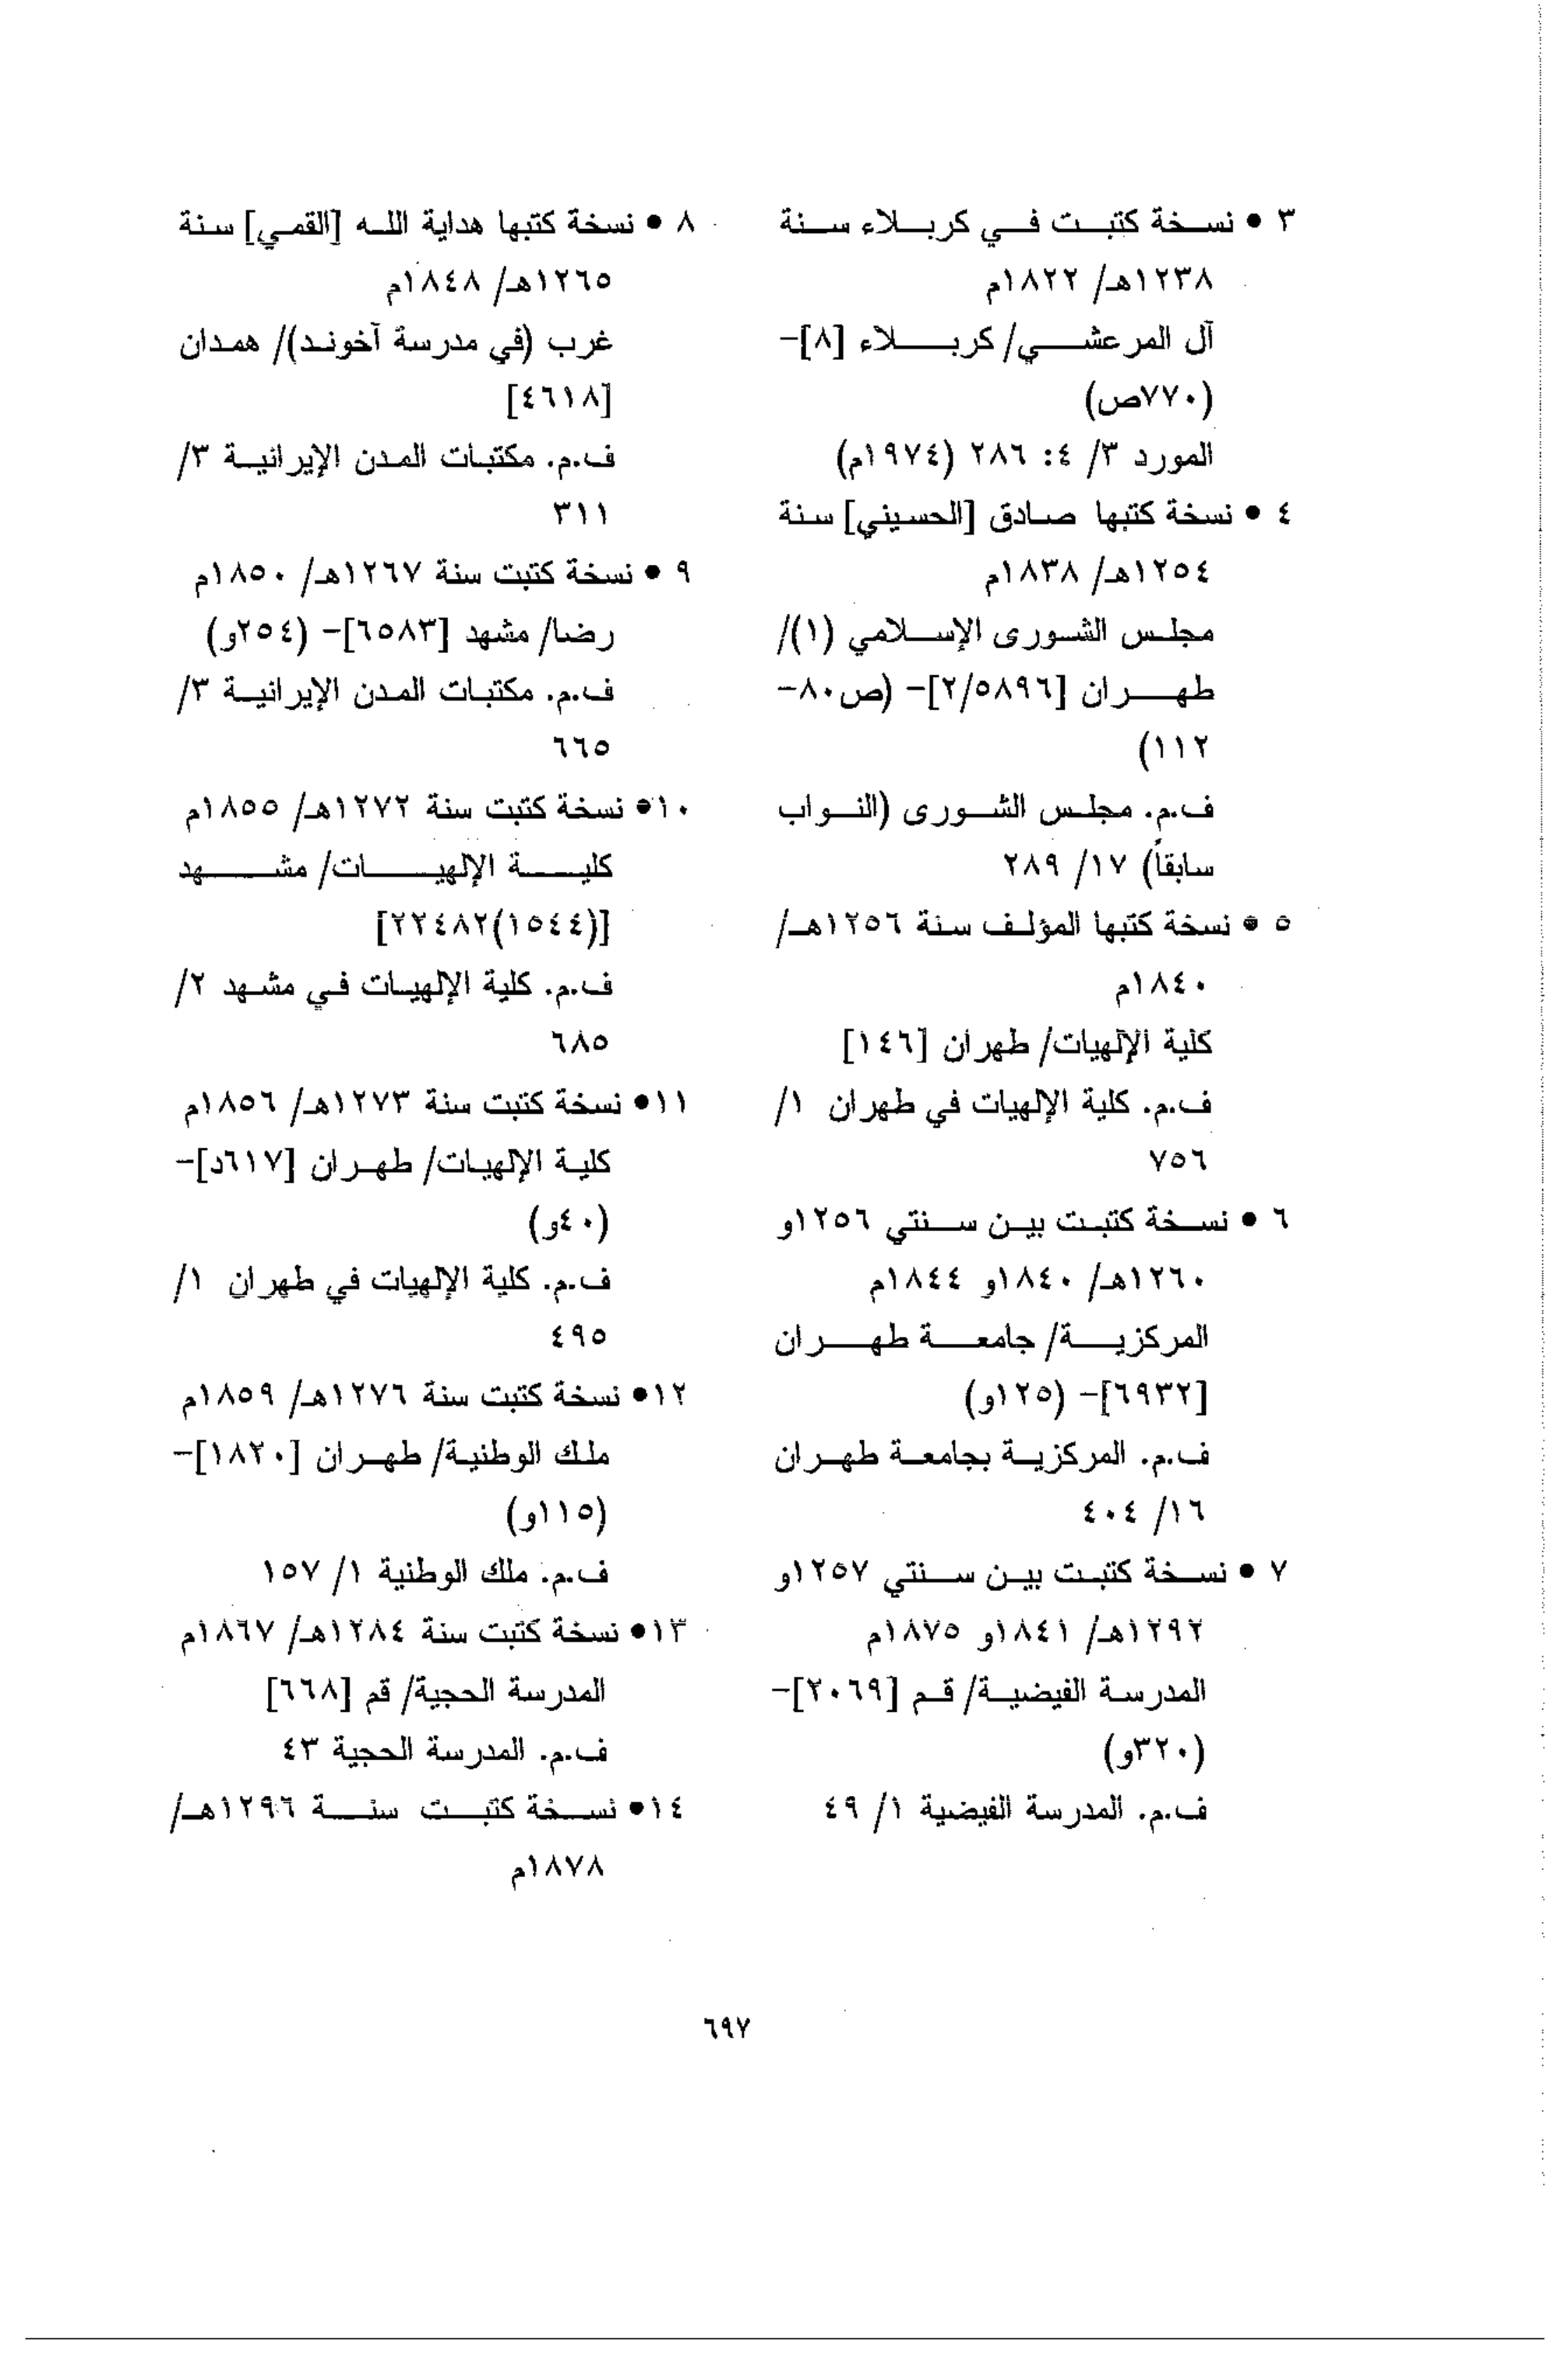 ٣ • نسخة كتبت في كربلاء سنة
١٢٣٨هـ/ ١٨٢٢م
آل المرعشي/ كربلاء [٨]-
(٧٧٠ص)
المورد ٣/ ٤: ٢٨٦ (١٩٧٤م)
٤ • نسخة كتبها صادق [الحسيني] سنة
١٢٥٤هـ/ ١٨٣٨م
مجلس الشورى الإسلامي (١)/
طهران [٢/٥٨٩٦]- (ص٨٠-
١١٢)
ف.م. مجلس الشورى (النواب
سابقاً) ١٧/ ٢٨٩
٥ • نسخة كتبها المؤلف سنة ١٢٥٦هـ/
١٨٤٠م
كلية الإلهيات/ طهران [١٤٦]
ف.م. كلية الإلهيات في طهران ١/
٧٥٦
٦ • نسخة كتبت بين سنتي ١٢٥٦و
١٢٦٠هـ/ ١٨٤٠و ١٨٤٤م
المركزية/ جامعة طهران
[٦٩٣٢]- (١٢٥و)
ف.م. المركزية بجامعة طهران
١٦/ ٤٠٤
٧ • نسخة كتبت بين سنتي ١٢٥٧و
١٢٩٢هـ/ ١٨٤١و ١٨٧٥م
المدرسة الفيضية/ قم [٢٠٦٩]-
(٣٢٠و)
ف.م. المدرسة الفيضية ١/ ٤٩
٨ • نسخة كتبها هداية الله [القمي] سنة
١٢٦٥هـ/ ١٨٤٨م
غرب (في مدرسة آخوند)/ همدان
[٤٦١٨]
ف.م. مكتبات المدن الإيرانية ٣/
٣١١
٩ • نسخة كتبت سنة ١٢٦٧هـ/ ١٨٥٠م
رضا/ مشهد [٦٥٨٣]- (٢٥٤و)
ف.م. مكتبات المدن الإيرانية ٣/
٦٦٥
١٠• نسخة كتبت سنة ١٢٧٢هـ/ ١٨٥٥م
كلية الإلهيات/ مشهد
[(١٥٤٤)٢٢٤٨٢]
ف.م. كلية الإلهيات في مشهد ٢/
٦٨٥
١١• نسخة كتبت سنة ١٢٧٣هـ/ ١٨٥٦م
كلية الإلهيات/ طهران [٦١٧د]-
(٤٠و)
ف.م. كلية الإلهيات في طهران ١/
٤٩٥
١٢• نسخة كتبت سنة ١٢٧٦هـ/ ١٨٥٩م
ملك الوطنية/ طهران [١٨٢٠]-
(١١٥و)
ف.م. ملك الوطنية ١/ ١٥٧
١٣• نسخة كتبت سنة ١٢٨٤هـ/ ١٨٦٧م
المدرسة الحجية/ قم [٦٦٨]
ف.م. المدرسة الحجية ٤٣
١٤• نسخة كتبت سنة ١٢٩٦هـ/
١٨٧٨م
٦٩٧